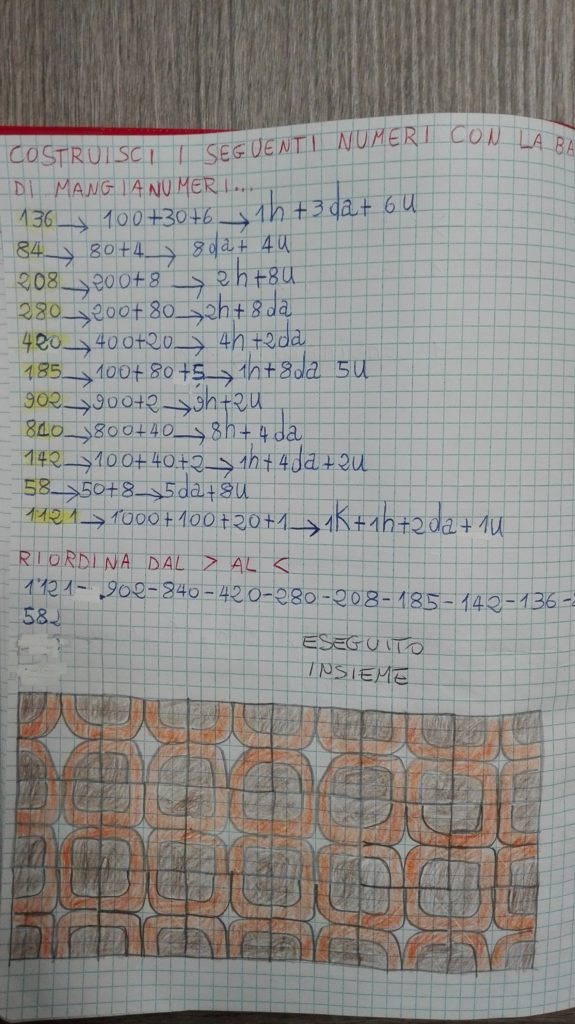 COSTRUISCI I SEGUENTI NUMERI CON LA BA
DI MANGIANUMERI...
136 → 100+30+6 → 1h+3da+6u
84 → 80+4 → 8da+4u
208 → 200+8 → 2h+8u
280 → 200+80 → 2h+8da
420 → 400+20 → 4h+2da
185 → 100+80+5 → 1h+8da 5u
902 → 900+2 → 9h+2u
840 → 800+40 → 8h+4da
142 → 100+40+2 → 1h+4da+2u
58 → 50+8 → 5da+8u
1121 → 1000+100+20+1 → 1K+1h+2da+1u
RIORDINA DAL > AL <
1121-902-840-420-280-208-185-142-136-
58
ESEGUITO
INSIEME